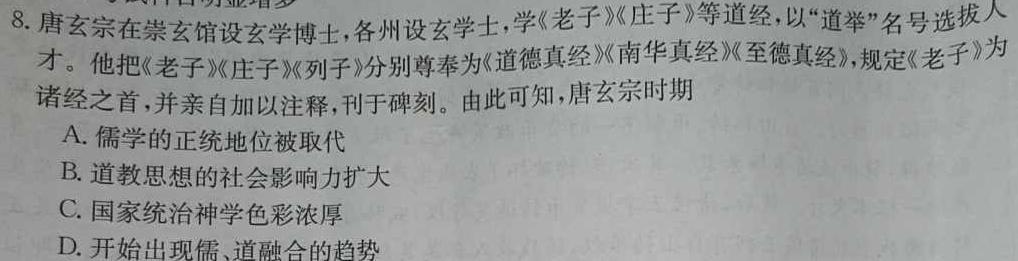 8. 唐玄宗在崇玄馆设玄学博士,各州设玄学士,学《老子》《庄子》等道经,以“道举”名号选拔人
才。他把《老子》《庄子》《列子》分别尊奉为《道德真经》《南华真经》《至德真经》,规定《老子》为
诸经之首,并亲自加以注释,刊于碑刻。由此可知,唐玄宗时期
A. 儒学的正统地位被取代
B. 道教思想的社会影响力扩大
C. 国家统治神学色彩浓厚
D. 开始出现儒、道融合的趋势